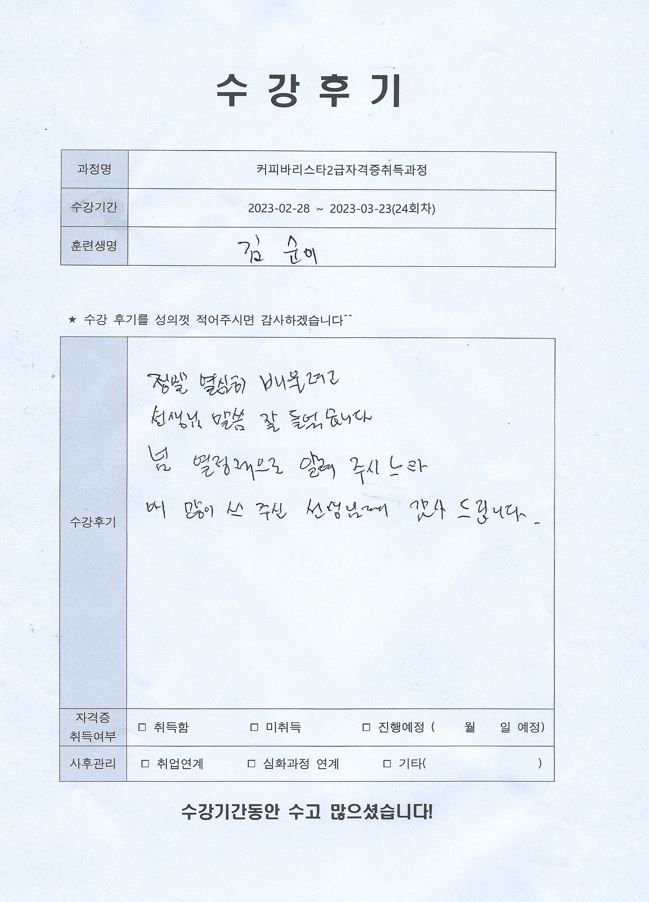 수강후기
과정명 커피바리스타2급자격증취득과정
수강기간 2023-02-28 ~ 2023-03-23(24회차)
훈련생명 김 순이
★ 수강 후기를 성의껏 적어주시면 감사하겠습니다^^
수강후기
정말 열심히 배울려고
선생님 말씀 잘 들었습니다
넘 열정적으로 알려 주시느라
애 많이 쓰 주신 선생님께 감사 드립니다.
자격증 취득여부 □ 취득함 □ 미취득 □ 진행예정 ( 월 일 예정)
사후관리 □ 취업연계 □ 심화과정 연계 □ 기타( )
수강기간동안 수고 많으셨습니다!